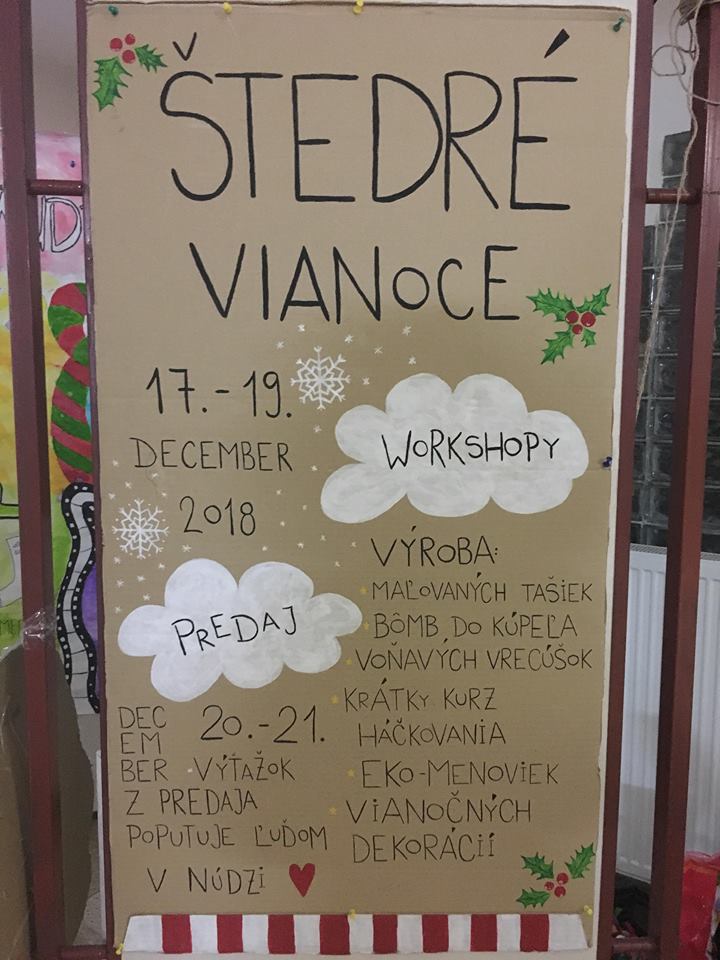 ŠTEDRÉ
VIANOCE
17.-19.
DECEMBER
2018
WORKSHOPY
VÝROBA:
MAĽOVANÝCH TAŠIEK
BÔMB DO KÚPEĽA
VOŇAVÝCH VRECÚŠOK
KRÁTKY KURZ
HÁČKOVANIA
EKO-MENOVIEK
VIANOČNÝCH
DEKORÁCIÍ
PREDAJ
DEC
EM
BER
20.-21.
VÝŤAŽOK
Z PREDAJA
POPUTUJE ĽUĎOM
V NÚDZI